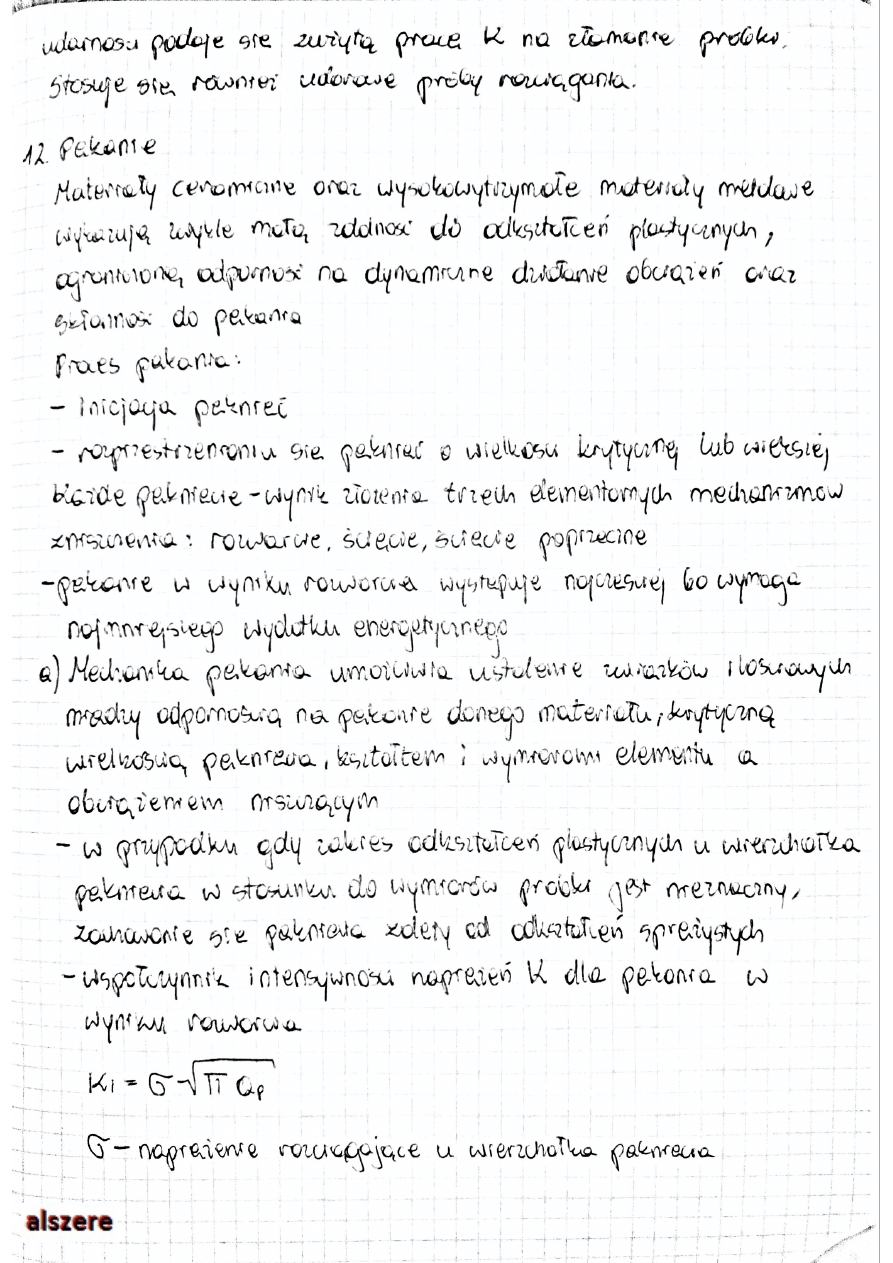 udarności podaje się zużytą pracę K na złamanie próbki.
Stosuje się również udarowe próby rozciągania.
12. Pękanie
Materiały ceramiczne oraz wysokowytrzymałe materiały metalowe
wykazują zwykle małą zdolność do odkształceń plastycznych,
ograniczoną odporność na dynamiczne działanie obciążeń oraz
skłonność do pękania
Proces pękania:
- Inicjacja pęknięć
- rozprzestrzenianiu się pęknięć o wielkości krytycznej lub większej
Każde pęknięcie - wynik złożenia trzech elementarnych mechanizmów
zniszczenia: rozwarcie, ścięcie, ścięcie poprzeczne
- pękanie w wyniku rozwarcia występuje najczęściej bo wymaga
najmniejszego wydatku energetycznego
a) Mechanika pękania umożliwia ustalenie związków ilościowych
między odpornością na pękanie danego materiału, krytyczną
wielkością pęknięcia, kształtem i wymiarami elementu a
obciążeniem niszczącym
- w przypadku gdy zakres odkształceń plastycznych u wierzchołka
pęknięcia w stosunku do wymiarów próbki jest nieznaczny,
zachowanie się pęknięcia zależy od odkształceń sprężystych
- współczynnik intensywności naprężeń K dla pękania w
wyniku rozwarcia
K₁ = σ √(π aₚ)
σ - naprężenie rozciągające u wierzchołka pęknięcia
alszere